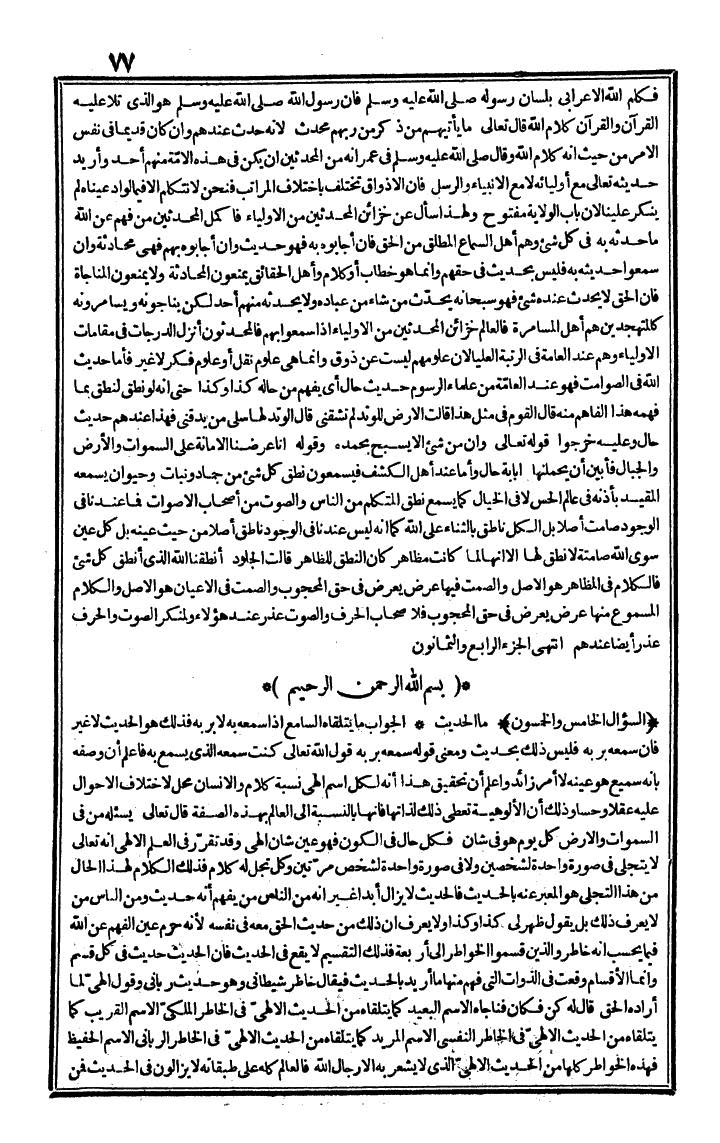 ٧٧
فكلم الله الاعرابى بلسان رسوله صلى الله عليه وسلم فان رسول الله صلى الله عليه وسلم هو الذى تلا عليه
القرآن والقرآن كلام الله قال تعالى ما يأتيهم من ذكر من ربهم محدث لانه حدث عندهم وان كان قديما فى نفس
الامر من حيث انه كلام الله وقال صلى الله عليه وسلم فى عمرانه من المحدثين ان يكن فى هذه الامّة منهم أحد وأريد
حديثه تعالى مع أوليائه لا مع الانبياء والرسل فان الاذواق تختلف باختلاف المراتب فنحن لا نتكلم الا فيما لو ادعيناه لم
ينكر علينا لان باب الولاية مفتوح ولهذا سأل عن خزائن المحدثين من الاولياء فا كمل المحدثين من فهم عن الله
ما حدثه به فى كل شئ وهم أهل السماع المطلق من الحق فان أجابوه به فهو حديث وان أجابوه بهم فهى محادثة وان
سمعوا حديثه به فليس بحديث فى حقهم وانما هو خطاب أو كلام وأهل الحقائق يمنعون المحادثة ولا يمنعون المناجاة
فان الحق لا يحدث عنده شئ فهو سبحانه يحدّث من شاء من عباده ولا يحدثه منهم أحد لكن يناجونه ويسامرونه
كالمتهجدين هم أهل المسامرة فالعالم خزائن المحدثين من الاولياء اذا سمعوا بهم فالمحدثون أنزل الدرجات فى مقامات
الاولياء وهم عند العامة فى الرتبة العليا لان علومهم ليست عن ذوق وانما هى علوم نقل أو علوم فكر لا غير فأما حديث
الله فى الصوامت فهو عند العامّة من علماء الرسوم حديث حال أى يفهم من حاله كذا وكذا حتى انه لو نطق لنطق بما
فهمه هذا الفاهم منه قال القوم فى مثل هذا قالت الارض للوتد لم تشقنى قال الوتد لها سلى من يدقنى فهذا عندهم حديث
حال وعليه خرجوا قوله تعالى وان من شئ الا يسبح بحمده وقوله انا عرضنا الامانة على السموات والأرض
والجبال فأبين أن يحملنها اباية حال وأما عند أهل الكشف فيسمعون نطق كل شئ من جماد ونبات وحيوان يسمعه
المقيد بأذنه فى عالم الحس لا فى الخيال كما يسمع نطق المتكلم من الناس والصوت من أصحاب الاصوات فما عندنا فى
الوجود صامت أصلا بل الكل ناطق بالثناء على الله كما انه ليس عندنا فى الوجود ناطق أصلا من حيث عينه بل كل عين
سوى الله صامتة لا نطق لها الا انها لما كانت مظاهر كان النطق للظاهر قالت الجلود أنطقنا الله الذى أنطق كل شئ
فالكلام فى المظاهر هو الاصل والصمت فيها عرض يعرض فى حق المحجوب والصمت فى الاعيان هو الاصل والكلام
المسموع منها عرض يعرض فى حق المحجوب فلا صحاب الحرف والصوت عذر عند هؤلاء ولمنكر الصوت والحرف
عذر أيضا عندهم انتهى الجزء الرابع والثمانون
*( بسم الله الرحمن الرحيم )*
﴿السؤال الخامس والخمسون﴾ ما الحديث * الجواب ما يتلقاه السامع اذا سمعه به لا بربه فذلك هو الحديث لا غير
فان سمعه بربه فليس ذلك بحديث ومعنى قوله سمعه بربه قول الله تعالى كنت سمعه الذى يسمع به فاعلم أن وصفه
بانه سميع هو عينه لا أمر زائد واعلم أن تحقيق هذا أنه لكل اسم الهى نسبة كلام والانسان محل لاختلاف الاحوال
عليه عقلا وحسا وذلك أن الألوهية تعطى ذلك لذاتها فانها بالنسبة الى العالم بهذه الصفة قال تعالى يسئله من فى
السموات والارض كل يوم هو فى شان فكل حال فى الكون فهو عين شان الهى وقد تقرّر فى العلم الالهى انه تعالى
لا يتجلى فى صورة واحدة لشخصين ولا فى صورة واحدة لشخص مرّتين وكل تجل له كلام فذلك الكلام لهذا الحال
من هذا التجلى هو المعبر عنه بالحديث فالحديث لا يزال أبدا غير انه من الناس من يفهم أنّه حديث ومن الناس من
لا يعرف ذلك بل يقول ظهر لى كذا وكذا ولا يعرف ان ذلك من حديث الحق معه فى نفسه لأنه حرم عين الفهم عن الله
فيما يحسب انه خاطر والذين قسموا الخواطر الى أربعة فذلك التقسيم لا يقع فى الحديث فان الحديث حديث فى كل قسم
وانما الأقسام وقعت فى الذوات التى فهم منها ما أريد بالحديث فيقال خاطر شيطانى وهو حديث ربانى وقول الهى لما
أراده الحق قال له كن فكان فناجاه الاسم البعيد كما يتلقاه من الحديث الالهىّ فى الخاطر الملكىّ الاسم القريب كما
يتلقاه من الحديث الالهىّ فى الخاطر النفسى الاسم المريد كما يتلقاه من الحديث الالهىّ فى الخاطر الربانى الاسم الحفيظ
فهذه الخواطر كلها من الحديث الالهىّ الذى لا يشعر به الا رجال الله فالعالم كله على طبقاته لا يزالون فى الحديث فمن